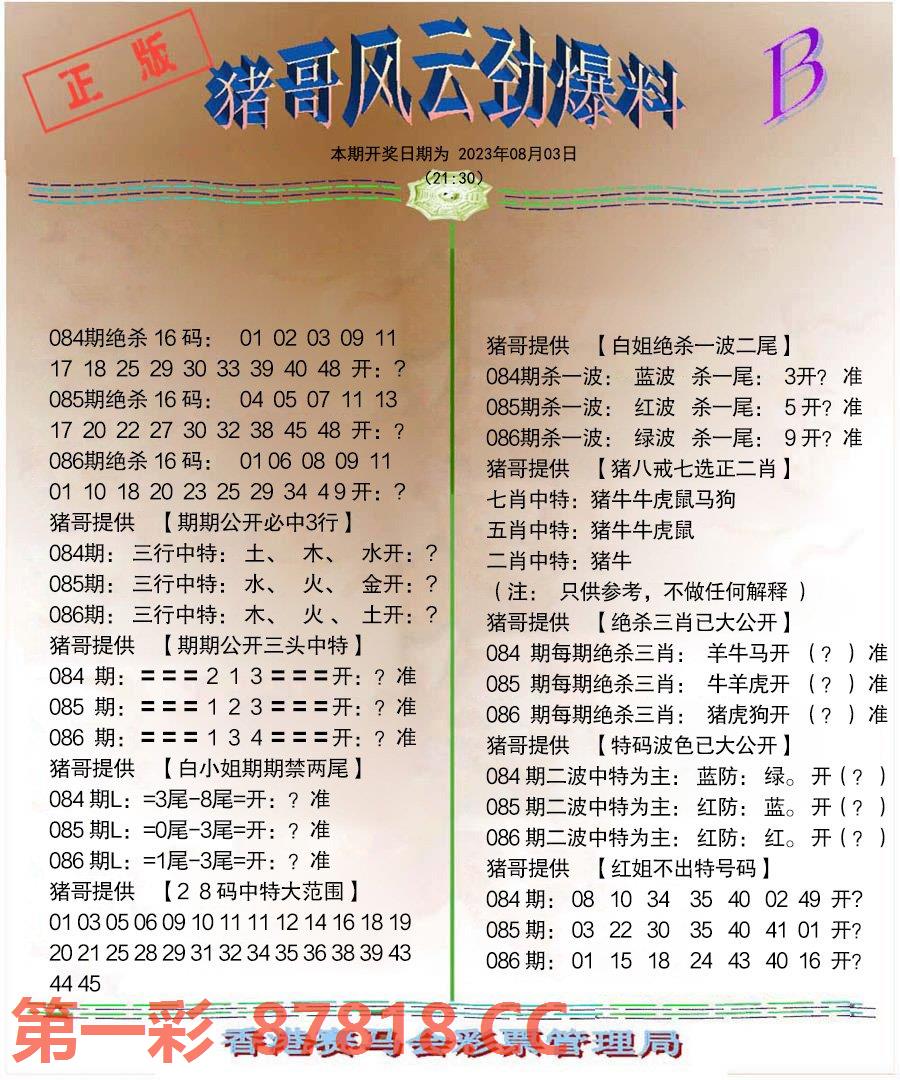 正版
猪哥风云劲爆料
B
本期开奖日期为 2023年08月03日
(21:30)
084期绝杀 16 码： 01 02 03 09 11
17 18 25 29 30 33 39 40 48 开：?
085期绝杀 16 码： 04 05 07 11 13
17 20 22 27 30 32 38 45 48 开：?
086期绝杀 16 码： 01 06 08 09 11
01 10 18 20 23 25 29 34 4 9 开：?
猪哥提供 【期期公开必中3行】
084期： 三行中特： 土、 木、 水开：?
085期： 三行中特： 水、 火、 金开：?
086期： 三行中特： 木、 火、 土开：?
猪哥提供 【期期公开三头中特】
084 期：〓〓〓 2 1 3 〓〓〓开：? 准
085 期：〓〓〓 1 2 3 〓〓〓开：? 准
086 期：〓〓〓 1 3 4 〓〓〓开：? 准
猪哥提供 【白小姐期期禁两尾】
084 期L：=3尾-8尾=开：? 准
085 期L：=0尾-3尾=开：? 准
086 期L：=1尾-3尾=开：? 准
猪哥提供 【2 8 码中特大范围】
01 03 05 06 09 10 11 11 12 14 16 18 19
20 21 25 28 29 31 32 34 35 36 38 39 43
44 45
猪哥提供 【白姐绝杀一波二尾】
084期杀一波： 蓝波 杀一尾： 3开? 准
085期杀一波： 红波 杀一尾： 5 开? 准
086期杀一波： 绿波 杀一尾： 9 开? 准
猪哥提供 【猪八戒七选正二肖】
七肖中特：猪牛牛虎鼠马狗
五肖中特：猪牛牛虎鼠
二肖中特：猪牛
（注： 只供参考，不做任何解释 ）
猪哥提供 【绝杀三肖已大公开】
084 期每期绝杀三肖： 羊牛马开 （? ）准
085 期每期绝杀三肖： 牛羊虎开 （? ）准
086 期每期绝杀三肖： 猪虎狗开 （? ）准
猪哥提供 【特码波色已大公开】
084 期二波中特为主： 蓝防：绿。开（? ）
085 期二波中特为主： 红防：蓝。开（? ）
086 期二波中特为主： 红防：红。开（? ）
猪哥提供 【红姐不出特号码】
084 期： 08 10 34 35 40 02 49 开?
085 期： 03 22 30 35 40 41 01 开?
086 期： 01 15 18 24 43 40 16 开?
第一彩 87818.CC
香港赛马会彩票管理局